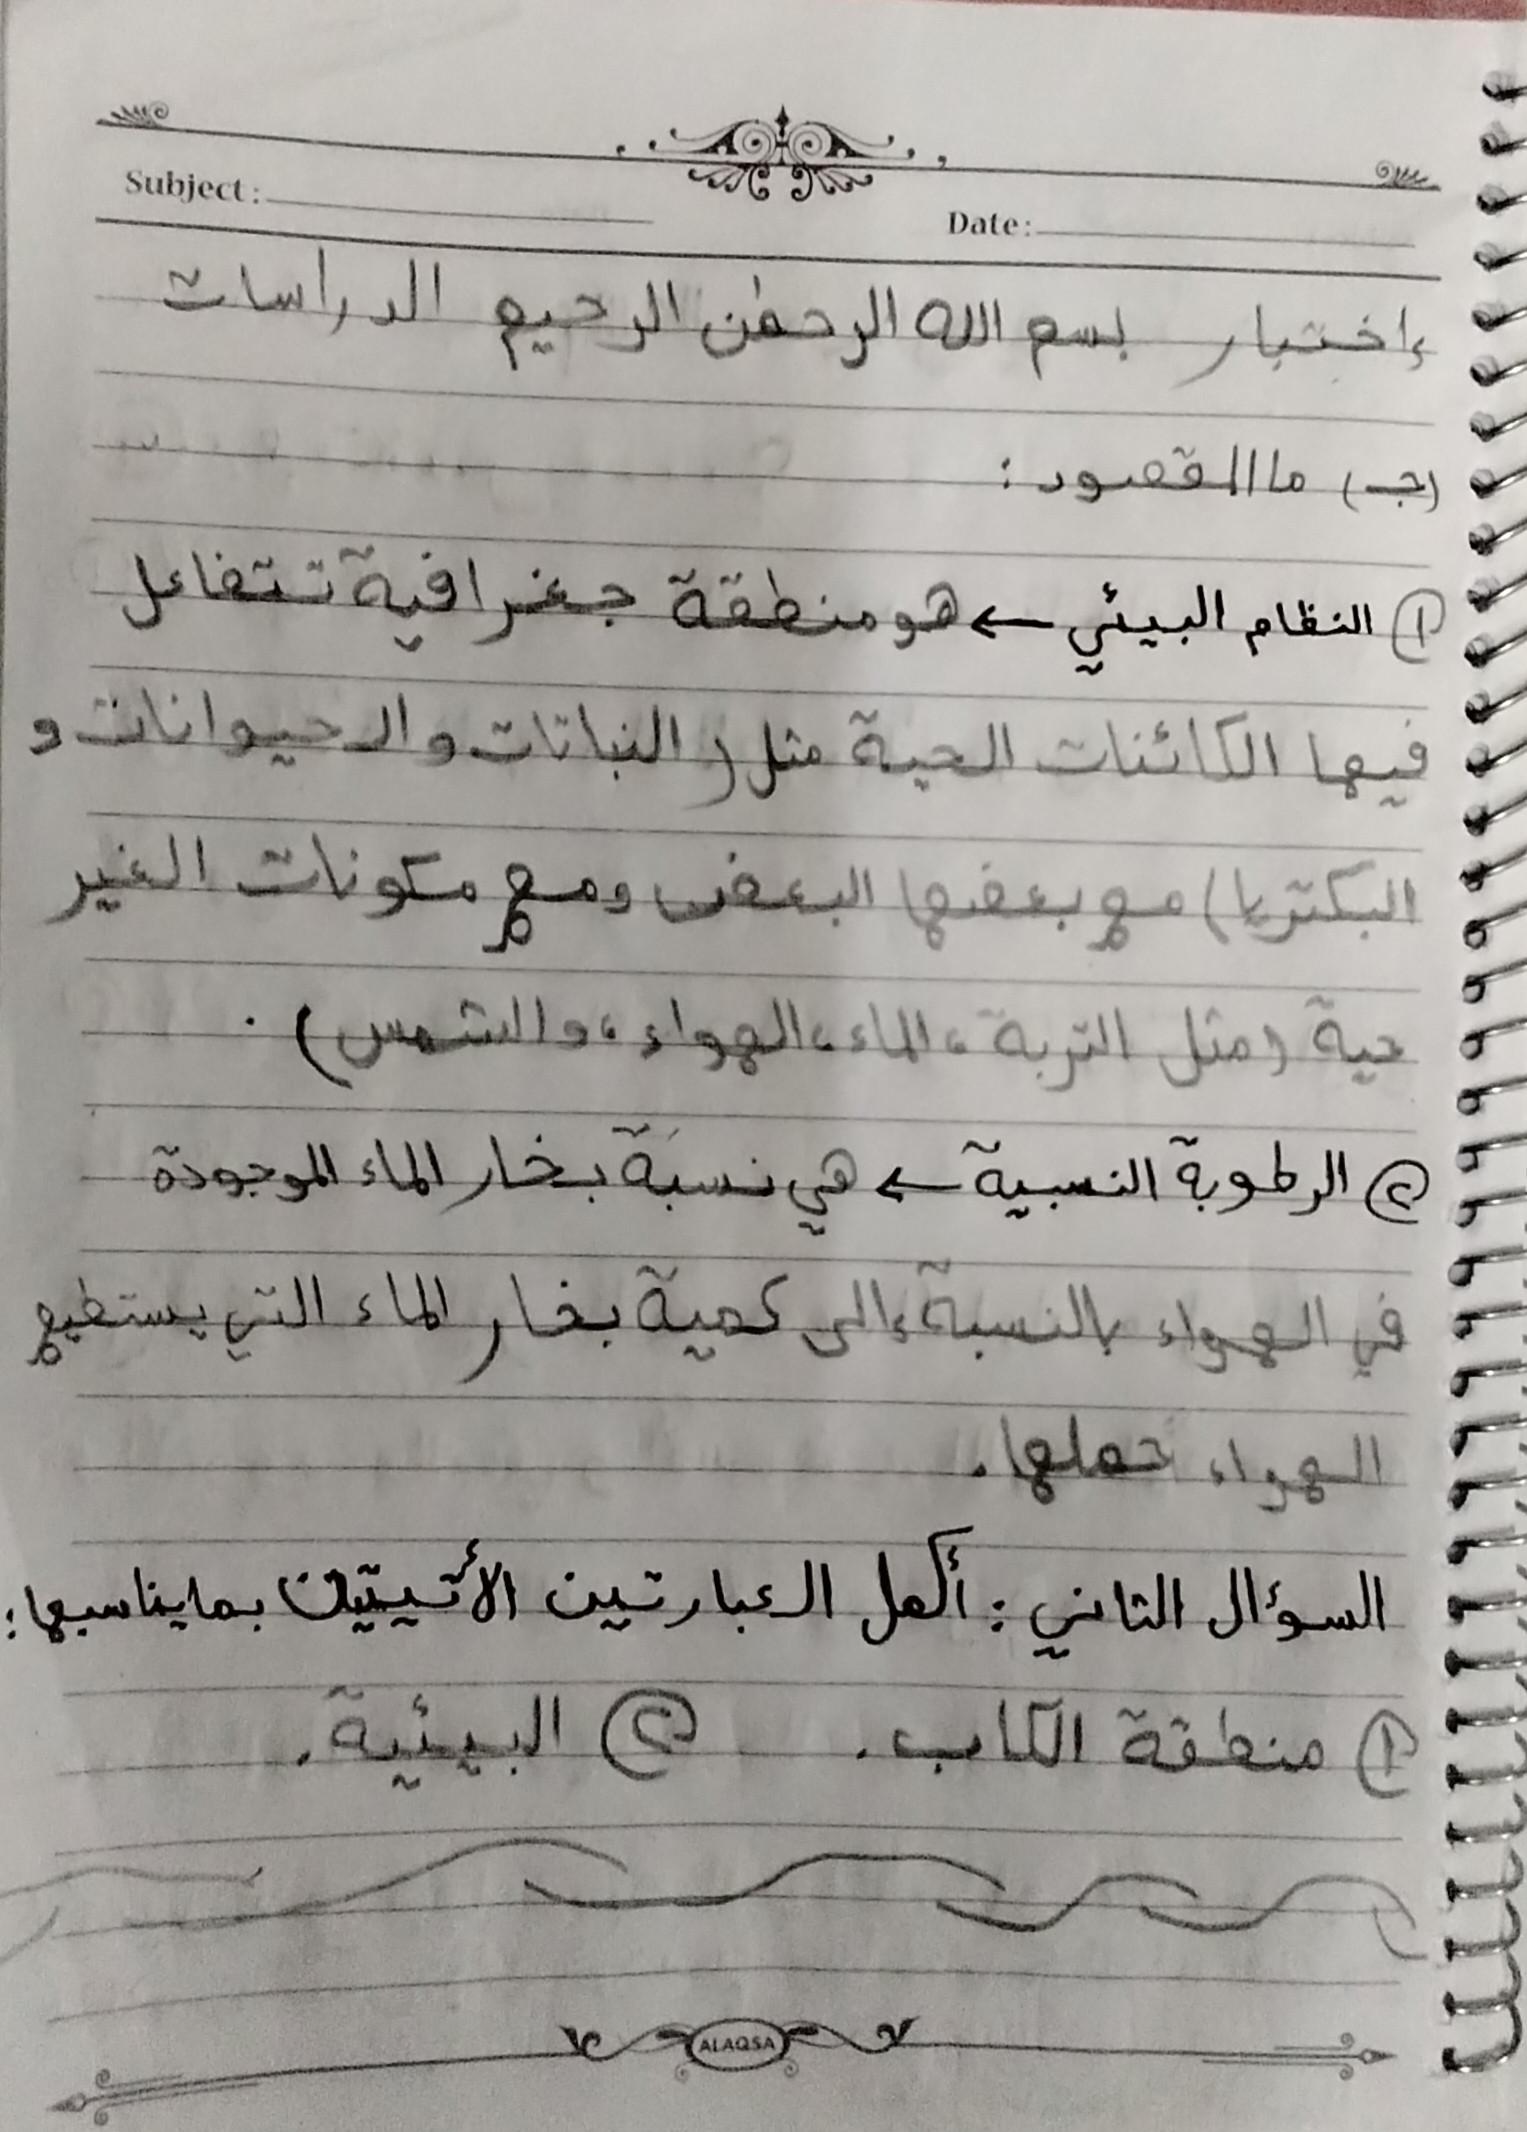 Subject:
Date:
إختبار بسم الله الرحمٰن الرحيم الدراسات
(جـ) ما المقصود:
① النظام البيئي ← هو منطقة جغرافية تتفاعل
فيها الكائنات الحية مثل (النباتات والحيوانات و
البكتريا) مع بعضها البعض ومع مكونات الغير
حية (مثل التربة، الماء، الهواء، والشمس).
② الرطوبة النسبية ← هي نسبَة بخار الماء الموجودة
في الهواء بالنسبة إلى كمية بخار الماء التي يستطيع
الهواء حملها.
السؤال الثاني: أكمل العبارتين الأتيتان بما يناسبها:
① منطقة الكاب. ② البيئية.
ALAQSA